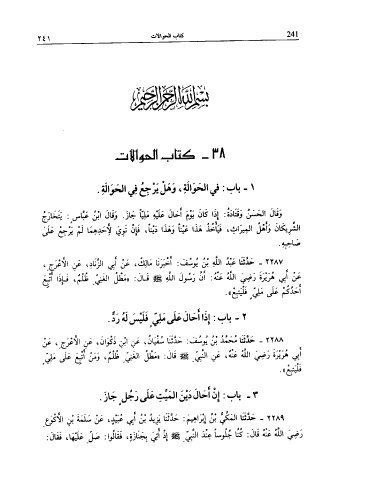 ٢٤١ كتاب الحوالات 241
بِسْمِ اللَّهِ الرَّحْمَنِ الرَّحِيمِ
٣٨ - كتاب الحوالات
١ - باب: في الحَوَالَةِ، وَهَلْ يَرْجِعُ فِي الحَوَالَةِ.
وَقَالَ الحَسَنُ وَقَتَادَةُ: إِذَا كَانَ يَوْمَ أَحَالَ عَلَيْهِ مَلِيًّا جَازَ. وَقَالَ ابْنُ عَبَّاسٍ: يَتَخَارَجُ
الشَّرِيكَانِ وَأَهْلُ المِيرَاثِ، فَيَأْخُذُ هَذَا عَيْناً وَهَذَا دَيْناً، فَإِنْ تَوِيَ لِأَحَدِهِمَا لَمْ يَرْجِعْ عَلَى
صَاحِبِهِ.
٢٢٨٧ - حَدَّثَنَا عَبْدُ اللَّهِ بْنُ يُوسُفَ: أَخْبَرَنَا مَالِكٌ، عَنْ أَبِي الزِّنَادِ، عَنِ الْأَعْرَجِ،
عَنْ أَبِي هُرَيْرَةَ رَضِيَ اللَّهُ عَنْهُ: أَنَّ رَسُولَ اللَّهِ ﷺ قَالَ: «مَطْلُ الغَنِيِّ ظُلْمٌ، فَإِذَا أُتْبِعَ
أَحَدُكُمْ عَلَى مَلِيٍّ فَلْيَتْبَعْ».
٢ - باب: إِذَا أَحَالَ عَلَى مَلِيٍّ فَلَيْسَ لَهُ رَدٌّ.
٢٢٨٨ - حَدَّثَنَا مُحَمَّدُ بْنُ يُوسُفَ: حَدَّثَنَا سُفْيَانُ، عَنِ ابْنِ ذَكْوَانَ، عَنِ الْأَعْرَجِ، عَنْ
أَبِي هُرَيْرَةَ رَضِيَ اللَّهُ عَنْهُ، عَنِ النَّبِيِّ ﷺ قَالَ: «مَطْلُ الغَنِيِّ ظُلْمٌ، وَمَنْ أُتْبِعَ عَلَى مَلِيٍّ
فَلْيَتَّبِعْ».
٣ - باب: إِنْ أَحَالَ دَيْنَ المَيِّتِ عَلَى رَجُلٍ جَازَ.
٢٢٨٩ - حَدَّثَنَا المَكِّيُّ بْنُ إِبْرَاهِيمَ: حَدَّثَنَا يَزِيدُ بْنُ أَبِي عُبَيْدٍ، عَنْ سَلَمَةَ بْنِ الْأَكْوَعِ
رَضِيَ اللَّهُ عَنْهُ قَالَ: كُنَّا جُلُوساً عِنْدَ النَّبِيِّ ﷺ إِذْ أُتِيَ بِجَنَازَةٍ، فَقَالُوا: صَلِّ عَلَيْهَا، فَقَالَ: